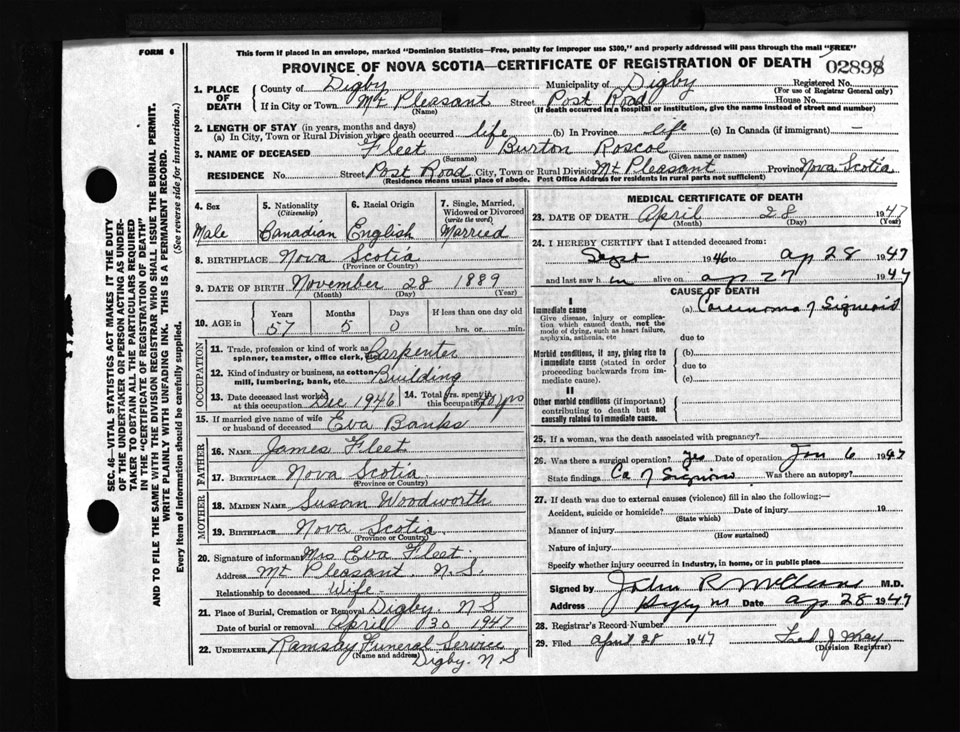 FORM 6
This form if placed in an envelope, marked "Dominion Statistics—Free, penalty for improper use $300," and properly addressed will pass through the mail "FREE"
PROVINCE OF NOVA SCOTIA—CERTIFICATE OF REGISTRATION OF DEATH 02898
SEC. 46—VITAL STATISTICS ACT MAKES IT THE DUTY
OF THE UNDERTAKER OR PERSON ACTING AS UNDER-
TAKER TO OBTAIN ALL THE PARTICULARS REQUIRED
IN THE "CERTIFICATE OF REGISTRATION OF DEATH"
AND TO FILE THE SAME WITH THE DIVISION REGISTRAR WHO SHALL ISSUE THE BURIAL PERMIT.
WRITE PLAINLY WITH UNFADING INK. THIS IS A PERMANENT RECORD.
Every item of information should be carefully supplied. (See reverse side for instructions.)
1. PLACE OF DEATH
County of Digby Municipality of Digby Registered No.
(For use of Registrar General only)
If in City or Town Mt Pleasant Street Post Road House No.
(Name) (If death occurred in a hospital or institution, give the name instead of street and number)
2. LENGTH OF STAY (in years, months and days)
(a) In City, Town or Rural Division where death occurred life (b) In Province life (c) In Canada (if immigrant) —
3. NAME OF DECEASED Fleet Burton Roscoe
(Surname) (Given name or names)
RESIDENCE No. Street Post Road City, Town or Rural Division Mt Pleasant Province Nova Scotia
(Residence means usual place of abode. Post Office Address for residents in rural parts not sufficient)
4. Sex Male
5. Nationality (Citizenship) Canadian
6. Racial Origin English
7. Single, Married, Widowed or Divorced (write the word) Married
8. BIRTHPLACE Nova Scotia
(Province or Country)
9. DATE OF BIRTH November 28 1889
(Month) (Day) (Year)
10. AGE in Years 57 Months 5 Days 0 If less than one day old hrs. or min.
OCCUPATION
11. Trade, profession or kind of work as spinner, teamster, office clerk, etc. Carpenter
12. Kind of industry or business, as cotton-mill, lumbering, bank, etc. Building
13. Date deceased last worked at this occupation Dec 1946 14. Total yrs. spent in this occupation 20 yrs
15. If married give name of wife or husband of deceased Eva Banks
FATHER
16. NAME James Fleet
17. BIRTHPLACE Nova Scotia
(Province or Country)
MOTHER
18. MAIDEN NAME Susan Woodworth
19. BIRTHPLACE Nova Scotia
(Province or Country)
20. Signature of informant Mrs Eva Fleet
Address Mt Pleasant. N.S.
Relationship to deceased Wife.
21. Place of Burial, Cremation or Removal Digby. N S
Date of burial or removal April 30 1947
22. UNDERTAKER Ramsay Funeral Service
(Name and address) Digby. N S
MEDICAL CERTIFICATE OF DEATH
23. DATE OF DEATH April 28 1947
(Month) (Day) (Year)
24. I HEREBY CERTIFY that I attended deceased from:
Sept 1946 to ap 28 1947
and last saw h im alive on ap 27 1947
CAUSE OF DEATH
I
Immediate cause
Give disease, injury or complication which caused death, not the mode of dying, such as heart failure, asphyxia, asthenia, etc
(a) Carcinoma of Sigmoid
due to
Morbid conditions, if any, giving rise to immediate cause (stated in order proceeding backwards from immediate cause).
(b)
due to
(c)
II
Other morbid conditions (if important) contributing to death but not causally related to immediate cause.
25. If a woman, was the death associated with pregnancy?
26. Was there a surgical operation? Yes Date of operation Jan 6 1947
State findings Ca of Sigmoid Was there an autopsy?
27. If death was due to external causes (violence) fill in also the following:
Accident, suicide or homicide? Date of injury 19
(State which)
Manner of injury
(How sustained)
Nature of injury
Specify whether injury occurred in industry, in home, or in public place
Signed by John R M.D.
Address Date ap 28 1947
28. Registrar's Record Number
29. Filed April 28 1947 Fred J May
(Division Registrar)